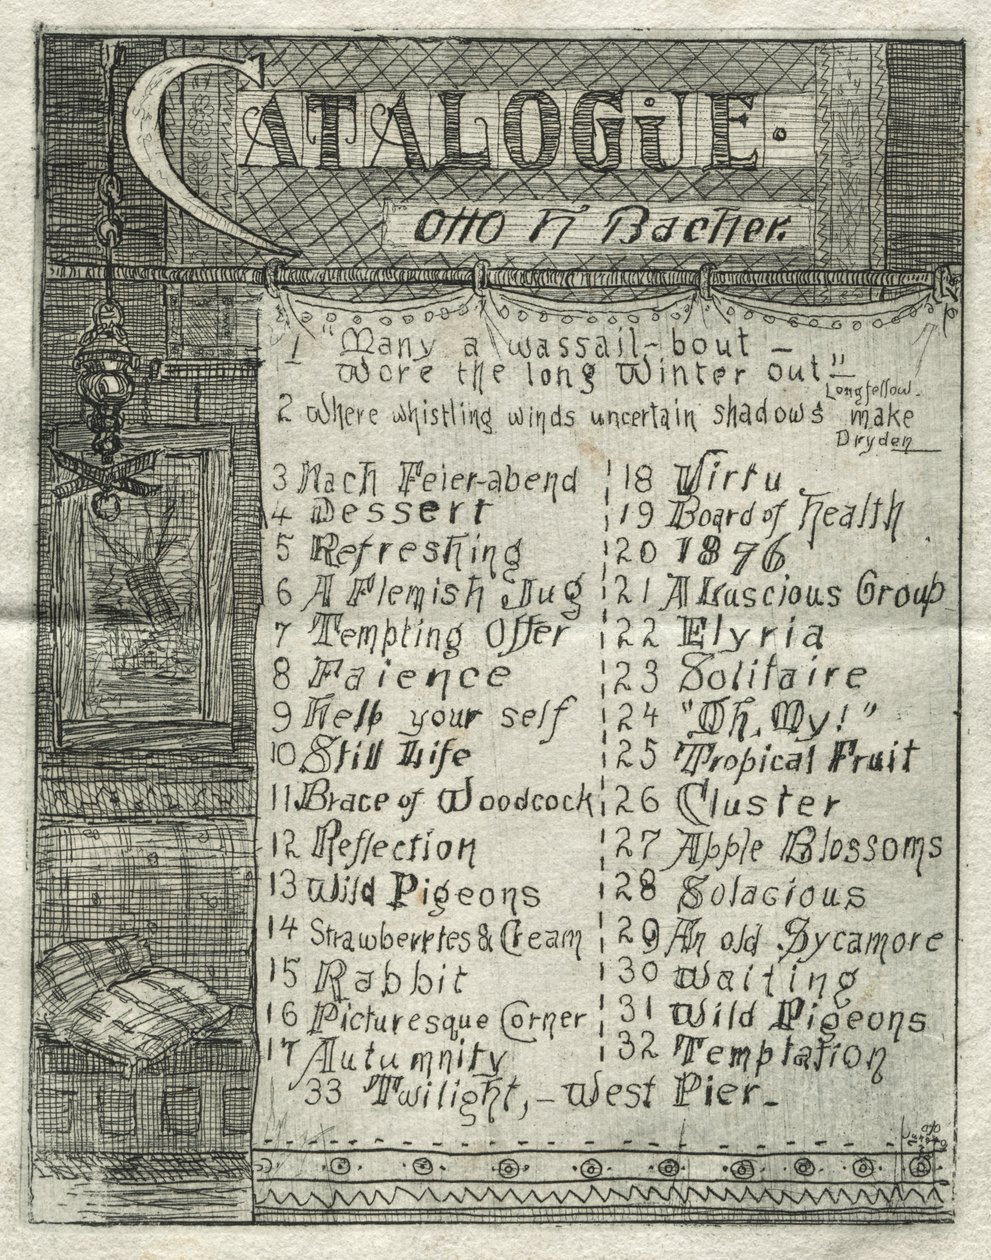 CATALOGUE.
Otto H Bacher.
1 "Many a wassail-bout –
Wore the long Winter out"–
Longfellow.
2 Where whistling winds uncertain shadows make
Dryden
3 Nach Feier-abend
4 Dessert
5 Refreshing
6 A Flemish Jug
7 Tempting Offer
8 Faience
9 Help your self
10 Still Life
11 Brace of Woodcock
12 Reflection
13 Wild Pigeons
14 Strawberries & Cream
15 Rabbit
16 Picturesque Corner
17 Autumnity
18 Virtu
19 Board of Health
20 1876
21 A Luscious Group
22 Elyria
23 Solitaire
24 "Oh, My!"
25 Tropical Fruit
26 Cluster
27 Apple Blossoms
28 Solacious
29 An old Sycamore
30 Waiting
31 Wild Pigeons
32 Temptation
33 Twilight, – West Pier.